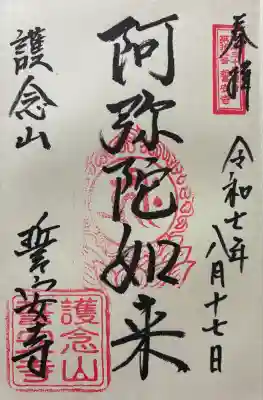 奉拝
令和七年八月十七日
阿弥陀如来
護念山
誓安寺
護念山
誓安寺